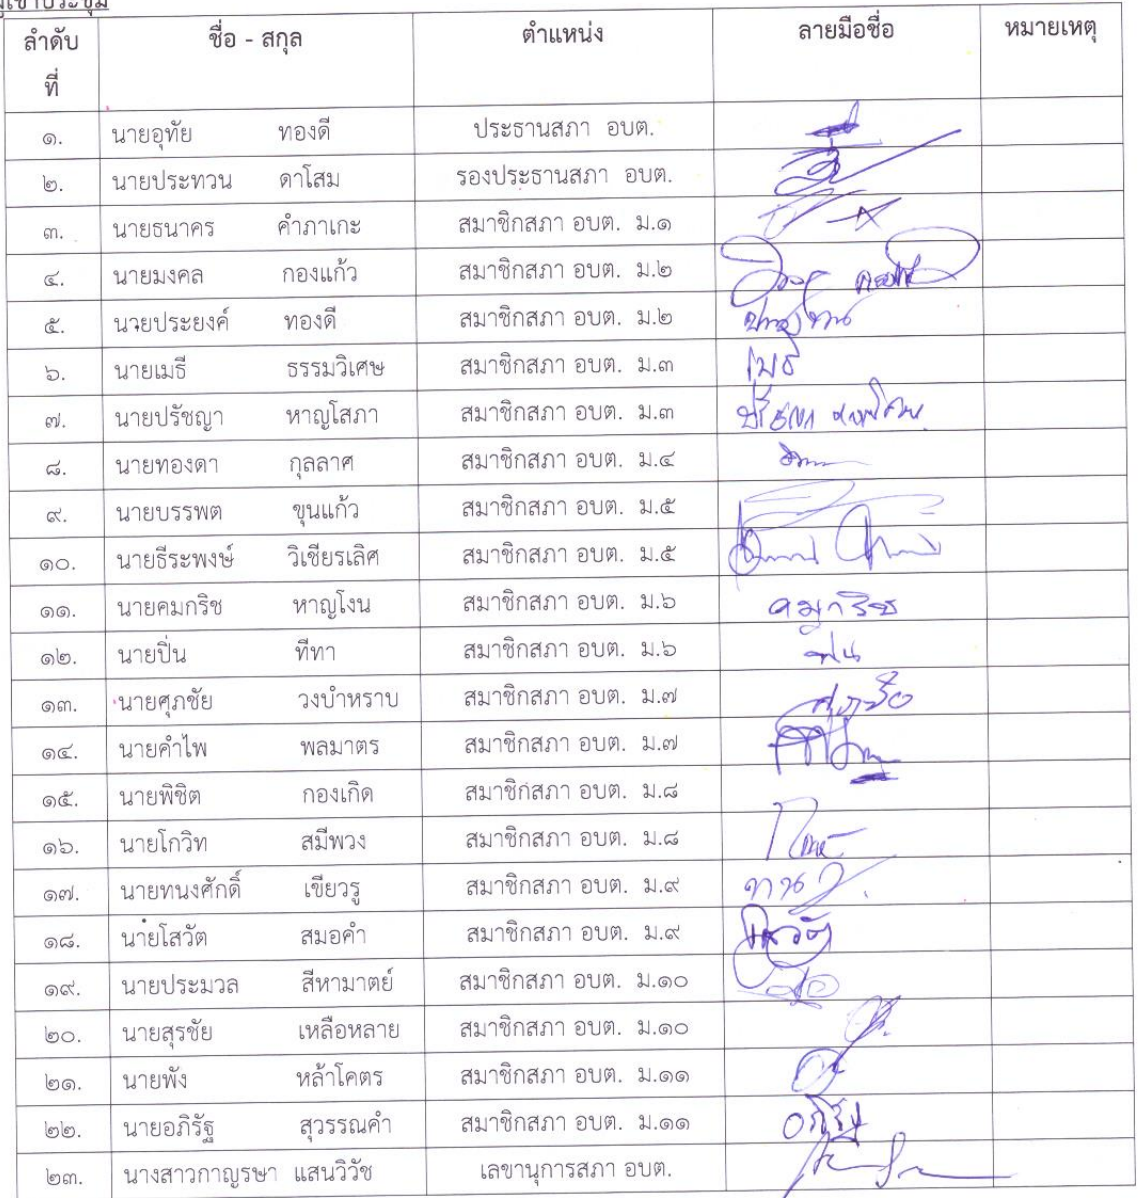 ผู้เข้าประชุม
ลำดับ ชื่อ - สกุล ตำแหน่ง ลายมือชื่อ หมายเหตุ
ที่
๑. นายอุทัย ทองดี ประธานสภา อบต.
๒. นายประทวน ดาโสม รองประธานสภา อบต.
๓. นายธนาคร คำภาเกะ สมาชิกสภา อบต. ม.๑
๔. นายมงคล กองแก้ว สมาชิกสภา อบต. ม.๒
๕. นายประยงค์ ทองดี สมาชิกสภา อบต. ม.๒
๖. นายเมธี ธรรมวิเศษ สมาชิกสภา อบต. ม.๓ เมธี
๗. นายปรัชญา หาญโสภา สมาชิกสภา อบต. ม.๓ ปรัชญา หาญโสภา
๘. นายทองดา กุลลาศ สมาชิกสภา อบต. ม.๔
๙. นายบรรพต ขุนแก้ว สมาชิกสภา อบต. ม.๕
๑๐. นายธีระพงษ์ วิเชียรเลิศ สมาชิกสภา อบต. ม.๕
๑๑. นายคมกริช หาญโงน สมาชิกสภา อบต. ม.๖ คมกริช
๑๒. นายปิ่น ทีทา สมาชิกสภา อบต. ม.๖ ปิ่น
๑๓. นายศุภชัย วงบำหราบ สมาชิกสภา อบต. ม.๗ ศุภชัย
๑๔. นายคำไพ พลมาตร สมาชิกสภา อบต. ม.๗
๑๕. นายพิชิต กองเกิด สมาชิกสภา อบต. ม.๘
๑๖. นายโกวิท สมีพวง สมาชิกสภา อบต. ม.๘
๑๗. นายทนงศักดิ์ เขียวรู สมาชิกสภา อบต. ม.๙
๑๘. นายโสวัต สมอคำ สมาชิกสภา อบต. ม.๙ โสวัต
๑๙. นายประมวล สีหามาตย์ สมาชิกสภา อบต. ม.๑๐
๒๐. นายสุรชัย เหลือหลาย สมาชิกสภา อบต. ม.๑๐
๒๑. นายพัง หล้าโคตร สมาชิกสภา อบต. ม.๑๑
๒๒. นายอภิรัฐ สุวรรณคำ สมาชิกสภา อบต. ม.๑๑ อภิรัฐ
๒๓. นางสาวกาญรษา แสนวิวัช เลขานุการสภา อบต.